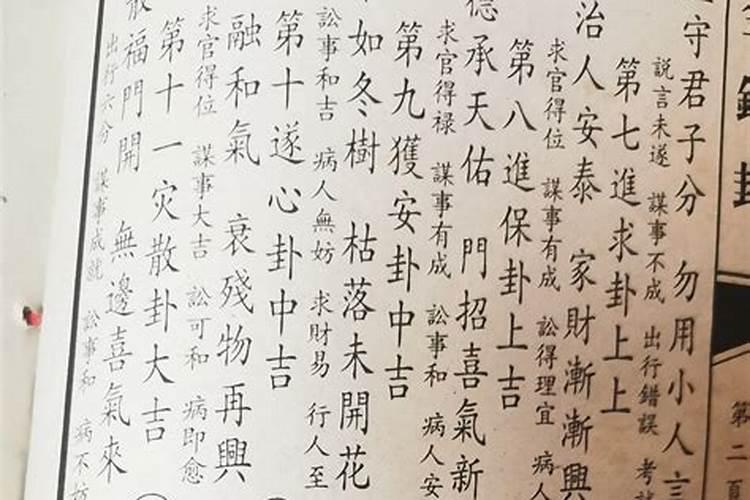 守君子分 勿用小人言
説言未遂 謀事不成 出行錯誤 考
第七進求卦上上
治人安泰 家財漸漸興
求官得位 謀事有成 訟得理宜 病人
第八進保卦上吉
德承天佑 門招喜氣新
求官得禄 謀事有成 訟事和 病人安
第九獲安卦中吉
如冬樹 枯落未開花
訟事和吉 病人無妨 求財易 行人至
第十遂心卦中吉
融和氣 衰殘物再興
求官得位 謀事大吉 訟可和 病即愈
第十一灾散卦大吉
散福門開 無邊喜氣來
出行六分 謀事成就 訟事和 病不妨
第二頁